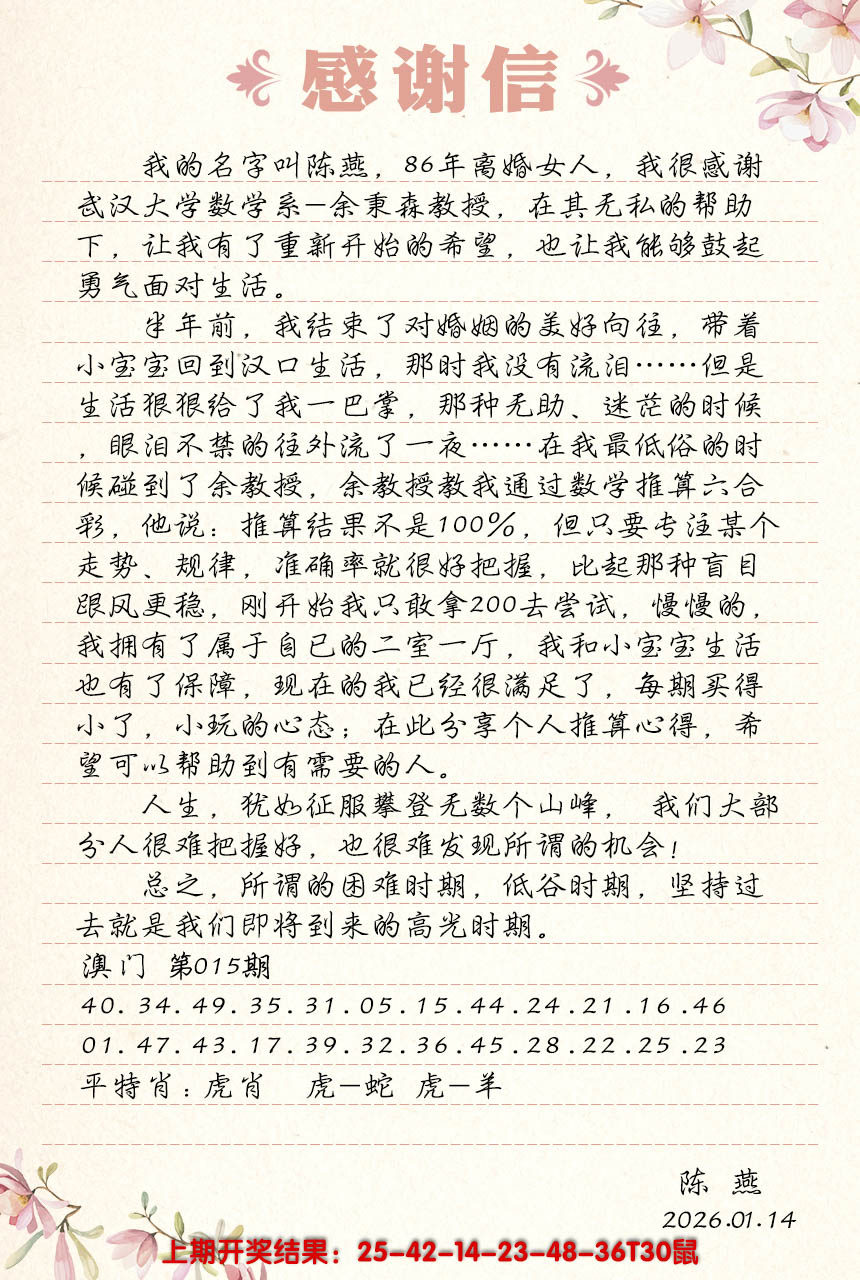 感谢信
我的名字叫陈燕，86年离婚女人，我很感谢
武汉大学数学系-余秉森教授，在其无私的帮助
下，让我有了重新开始的希望，也让我能够鼓起
勇气面对生活。
半年前，我结束了对婚姻的美好向往，带着
小宝宝回到汉口生活，那时我没有流泪……但是
生活狠狠给了我一巴掌，那种无助、迷茫的时候
，眼泪不禁的往外流了一夜……在我最低俗的时
候碰到了余教授，余教授教我通过数学推算六合
彩，他说：推算结果不是100%，但只要专注某个
走势、规律，准确率就很好把握，比起那种盲目
跟风更稳，刚开始我只敢拿200去尝试，慢慢的，
我拥有了属于自已的二室一厅，我和小宝宝生活
也有了保障，现在的我已经很满足了，每期买得
小了，小玩的心态；在此分享个人推算心得，希
望可以帮助到有需要的人。
人生，犹如征服攀登无数个山峰， 我们大部
分人很难把握好，也很难发现所谓的机会！
总之，所谓的困难时期，低谷时期，坚持过
去就是我们即将到来的高光时期。
澳门 第015期
40.34.49.35.31.05.15.44.24.21.16.46
01.47.43.17.39.32.36.45.28.22.25.23
平特肖：虎肖 虎-蛇 虎-羊
陈 燕
2026.01.14
上期开奖结果：25-42-14-23-48-36T30鼠